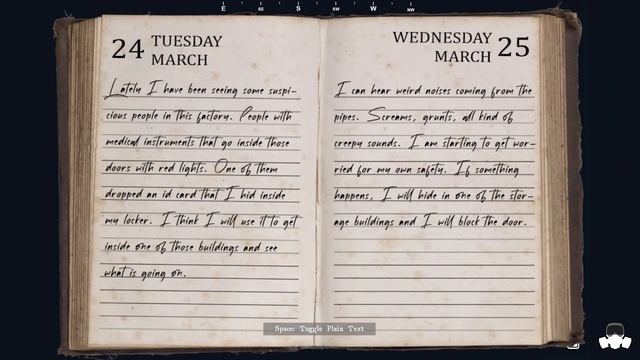 E SE S SW W NW
24 TUESDAY
MARCH
Lately I have been seeing some suspi-
cious people in this factory. People with
medical instruments that go inside those
doors with red lights. One of them
dropped an id card that I hid inside
my locker. I think I will use it to get
inside one of those buildings and see
what is going on.
WEDNESDAY 25
MARCH
I can hear weird noises coming from the
pipes. Screams, grunts, all kind of
creepy sounds. I am starting to get wor-
ried for my own safety. If something
happens, I will hide in one of the stor-
age buildings and I will block the door.
Space: Toggle Plain Text